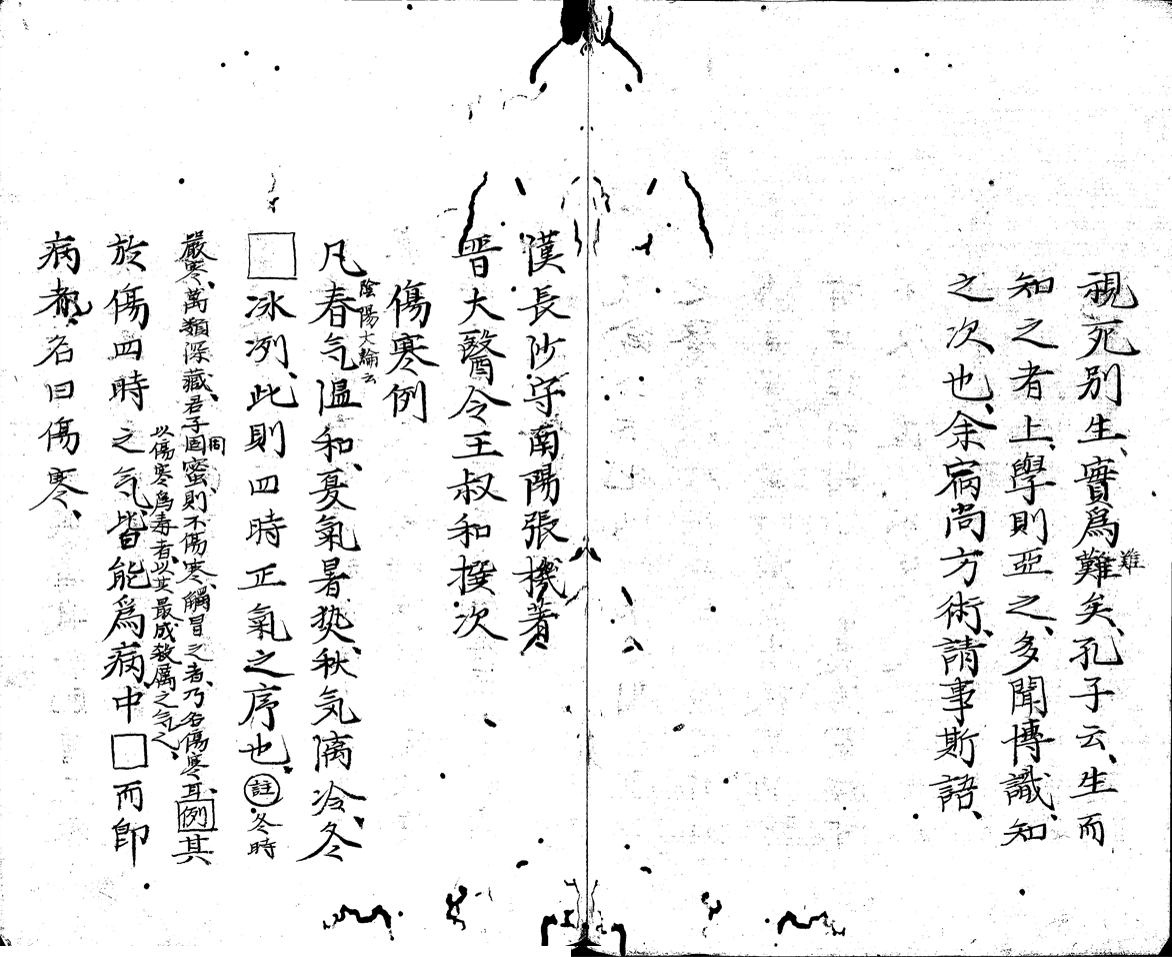 視死別生、實爲難矣、孔子云、生而
難
知之者上、學則亞之、多聞博識、知
之次也、余宿尚方術、請事斯語、
漢長沙守南陽張機著
晋大醫令王叔和撰次
傷寒例
陰陽大論云
凡春气溫和、夏氣暑热、秋気清冷、冬
□冰冽、此則四時正氣之序也、註冬時
嚴寒、萬類深藏、君子固蜜、則不傷寒、觸冒之者、乃名傷寒耳、例其
周
以傷寒爲毒者、以其最成殺厲之气也、
於傷四時之气、皆能爲病、中□而卽
病者、名曰傷寒、